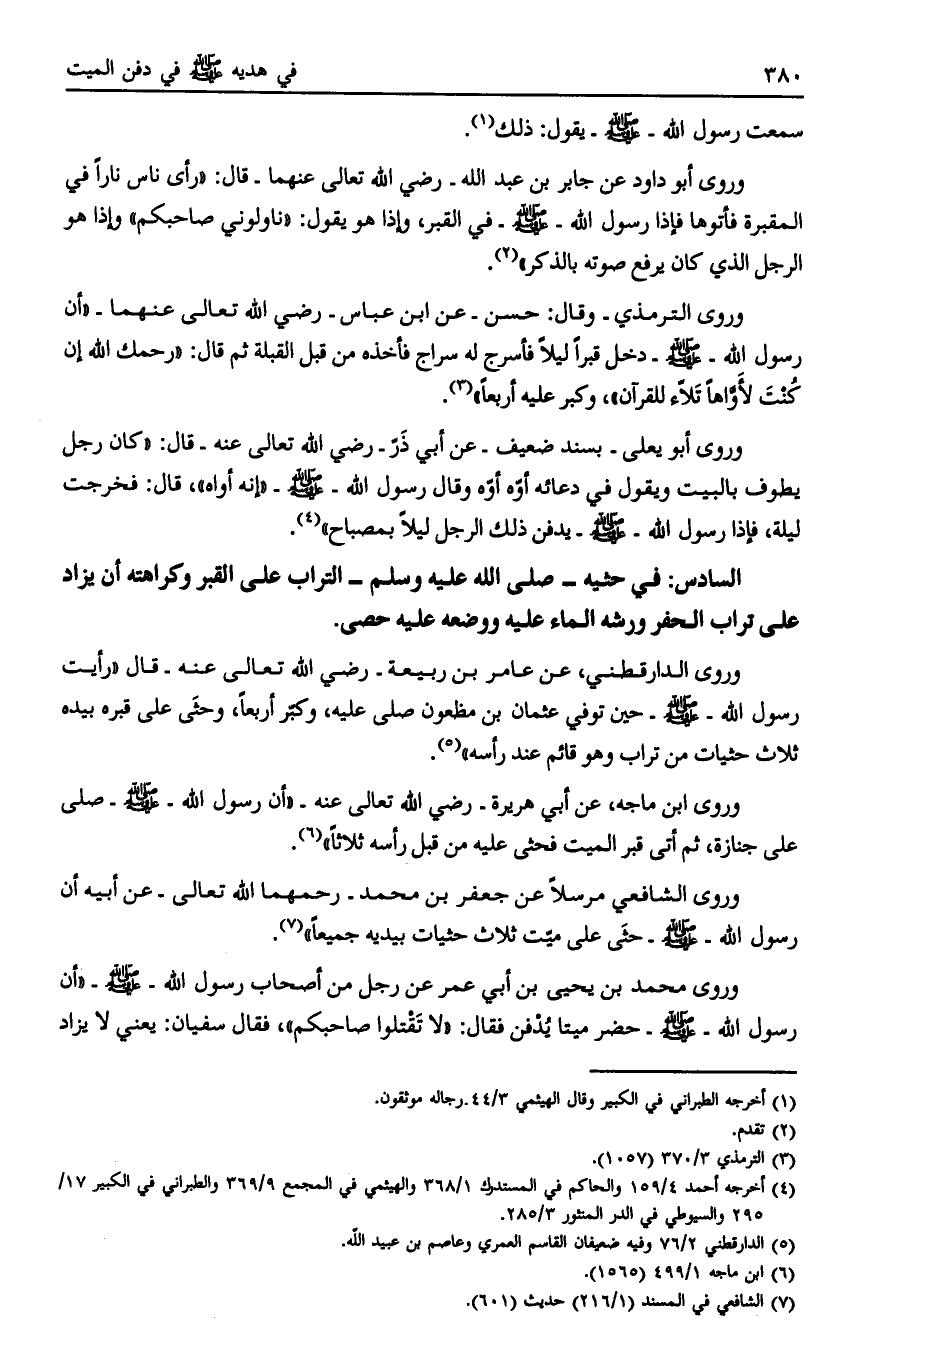 ٣٨٠
في هديه ﷺ في دفن الميت
سمعت رسول الله ـ ﷺ ـ يقول: ذلك(١).
وروى أبو داود عن جابر بن عبد الله ـ رضي الله تعالى عنهما ـ قال: «رأى ناس ناراً في
المقبرة فأتوها فإذا رسول الله ـ ﷺ ـ في القبر، وإذا هو يقول: «ناولوني صاحبكم» وإذا هو
الرجل الذي كان يرفع صوته بالذكر»(٢).
وروى الترمذي ـ وقال: حسن ـ عن ابن عباس ـ رضي الله تعالى عنهما ـ «أن
رسول الله ـ ﷺ ـ دخل قبراً ليلاً فأسرج له سراج فأخذه من قبل القبلة ثم قال: «رحمك الله إن
كُنْتَ لأَوَّاهاً تَلاَّء للقرآن»، وكبر عليه أربعاً»(٣).
وروى أبو يعلى ـ بسند ضعيف ـ عن أبي ذَرّ ـ رضي الله تعالى عنه ـ قال: «كان رجل
يطوف بالبيت ويقول في دعائه أوّه أوّه وقال رسول الله ـ ﷺ ـ «إنه أواه»، قال: فخرجت
ليلة، فإذا رسول الله ـ ﷺ ـ يدفن ذلك الرجل ليلاً بمصباح»(٤).
السادس: في حثيه ـ صلى الله عليه وسلم ـ التراب على القبر وكراهته أن يزاد
على تراب الحفر ورشه الماء عليه ووضعه عليه حصى.
وروى الدارقطني، عن عامر بن ربيعة ـ رضي الله تعالى عنه ـ قال «رأيت
رسول الله ـ ﷺ ـ حين توفي عثمان بن مظعون صلى عليه، وكبّر أربعاً، وحثَى على قبره بيده
ثلاث حثيات من تراب وهو قائم عند رأسه»(٥).
وروى ابن ماجه، عن أبي هريرة ـ رضي الله تعالى عنه ـ «أن رسول الله ـ ﷺ ـ صلى
على جنازة، ثم أتى قبر الميت فحثى عليه من قبل رأسه ثلاثاً»(٦).
وروى الشافعي مرسلاً عن جعفر بن محمد ـ رحمهما الله تعالى ـ عن أبيه أن
رسول الله ـ ﷺ ـ حثَى على ميّت ثلاث حثيات بيديه جميعاً»(٧).
وروى محمد بن يحيى بن أبي عمر عن رجل من أصحاب رسول الله ـ ﷺ ـ «أن
رسول الله ـ ﷺ ـ حضر ميتا يُدْفن فقال: «لا تَقْتلوا صاحبكم»، فقال سفيان: يعني لا يزاد
(١) أخرجه الطبراني في الكبير وقال الهيثمي ٤٤/٣ـرجاله موثقون.
(٢) تقدم.
(٣) الترمذي ٣٧٠/٣ (١٠٥٧).
(٤) أخرجه أحمد ١٥٩/٤ والحاكم في المستدرك ٣٦٨/١ والهيثمي في المجمع ٣٦٩/٩ والطبراني في الكبير ١٧/
٢٩٥ والسيوطي في الدر المنثور ٢٨٥/٣.
(٥) الدارقطني ٧٦/٢ وفيه ضعيفان القاسم العمري وعاصم بن عبيد اللّه.
(٦) ابن ماجه ٤٩٩/١ (١٥٦٥).
(٧) الشافعي في المسند (٢١٦/١) حديث (٦٠١).